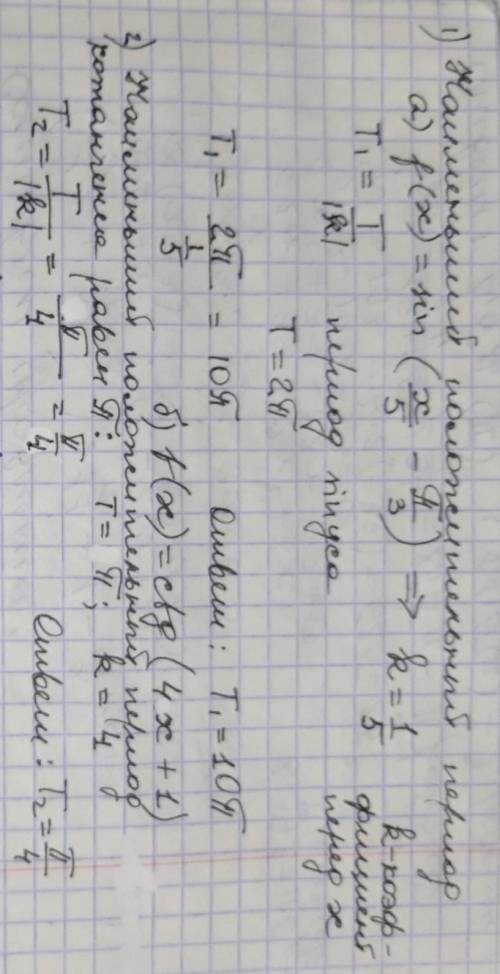 1) Наименьший положительный период
а) f(x) = sin (x/5 - π/3) ⇒ k = 1/5
k - коэф-
фициент
перед x
T₁ = T/|k| период sinуса
T = 2π
T₁ = 2π/(1/5) = 10π Ответ: T₁ = 10π
б) f(x) = ctg (4x + 1)
2) Наименьший положительный период
котангенса равен π: T = π; k = 4
T₂ = T/|k| = π/4 = π/4 Ответ: T₂ = π/4